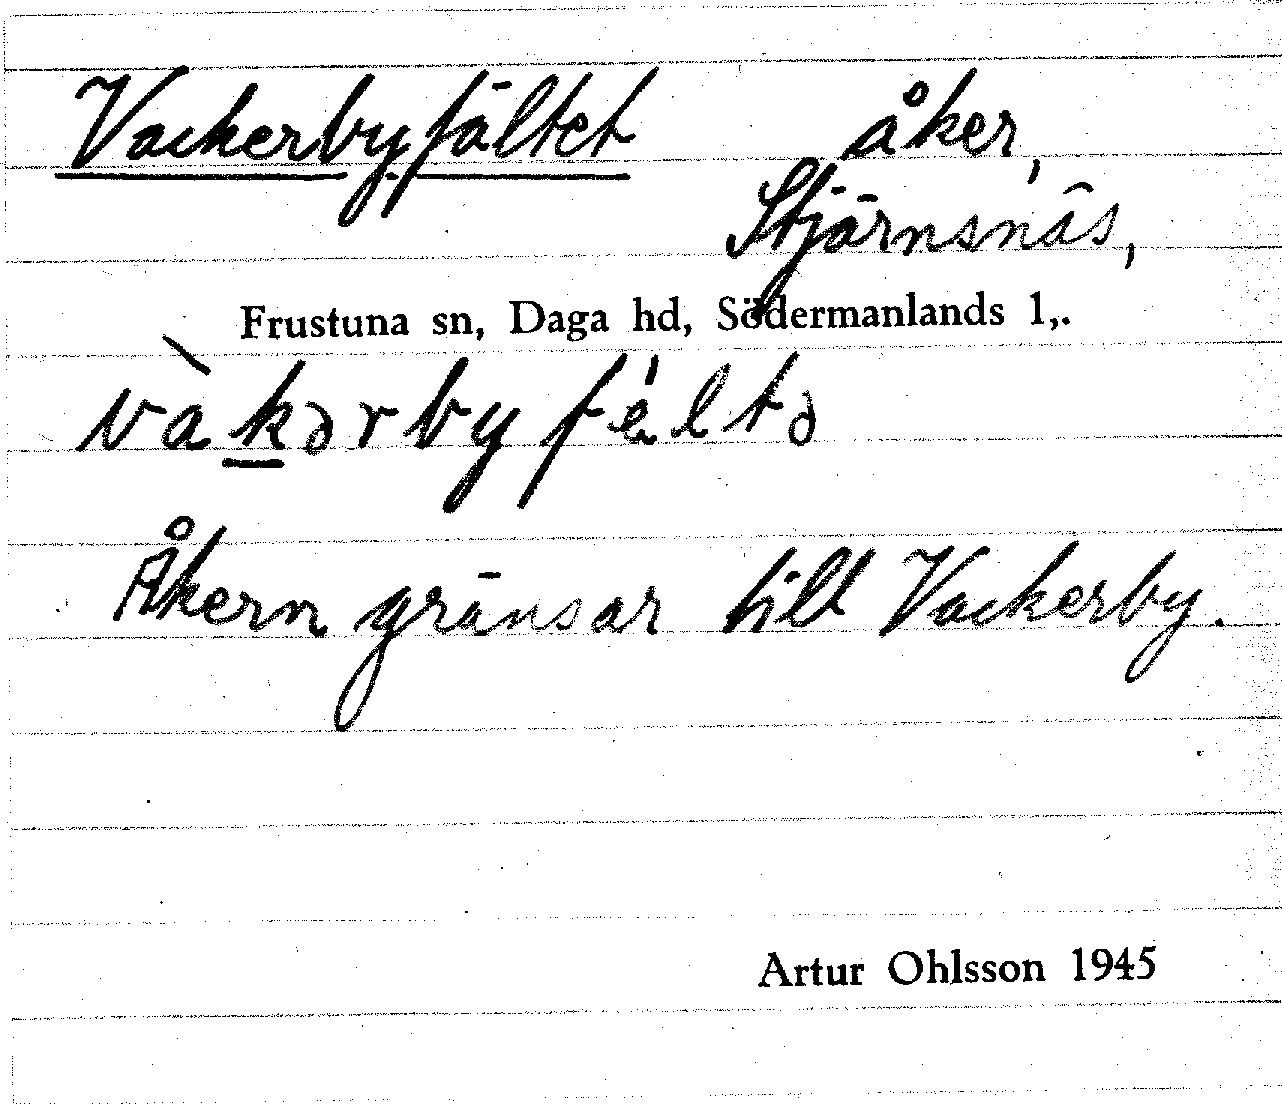 Vackerbyfältet åker,
Stjärnsnäs,
Frustuna sn, Daga hd, Södermanlands l,.
vàkərbyféltə
Åkern gränsar till Vackerby.
Artur Ohlsson 1945